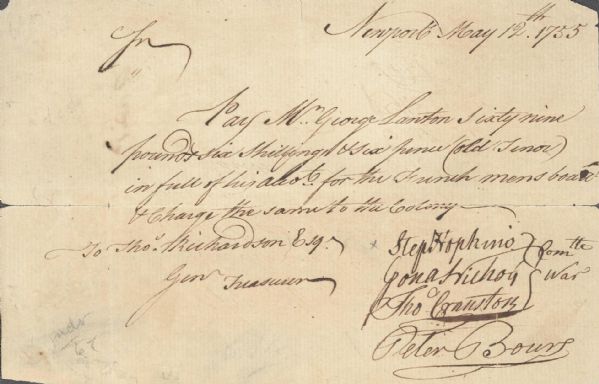 Newport May 12th. 1755
Sr
Pay Mr George Lanton Sixty nine
pounds six Shillings & six pence (old Tenor)
in full of his accot. for the French mens board
& Charge the same to the Colony
To Thos. Richardson Esqr
Genl Treasurer
Step Hopkins
Jona Nichols
Thos Cranston
Comtte
War
Peter Bours